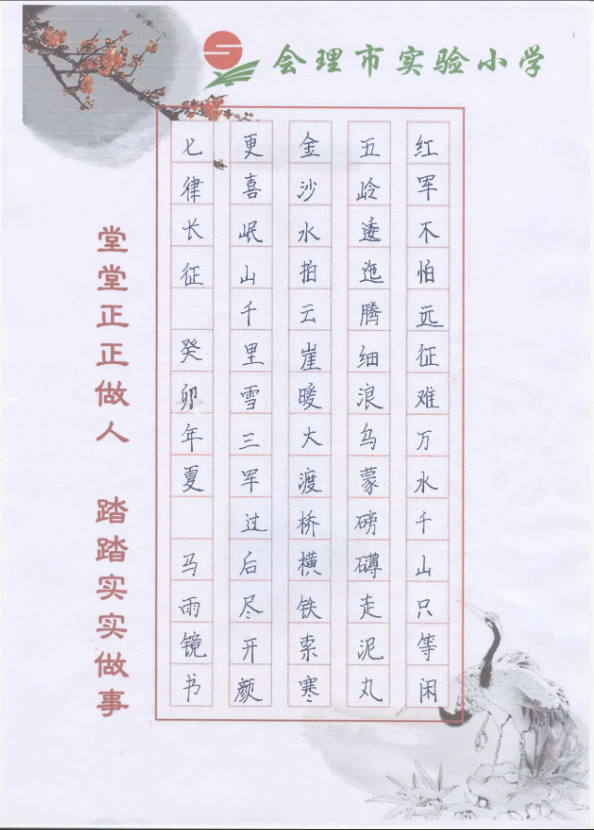 会理市实验小学
红军不怕远征难万水千山只等闲
五岭逶迤腾细浪乌蒙磅礴走泥丸
金沙水拍云崖暖大渡桥横铁索寒
更喜岷山千里雪三军过后尽开颜
七律长征 癸卯年夏 马雨镜书
堂堂正正做人 踏踏实实做事